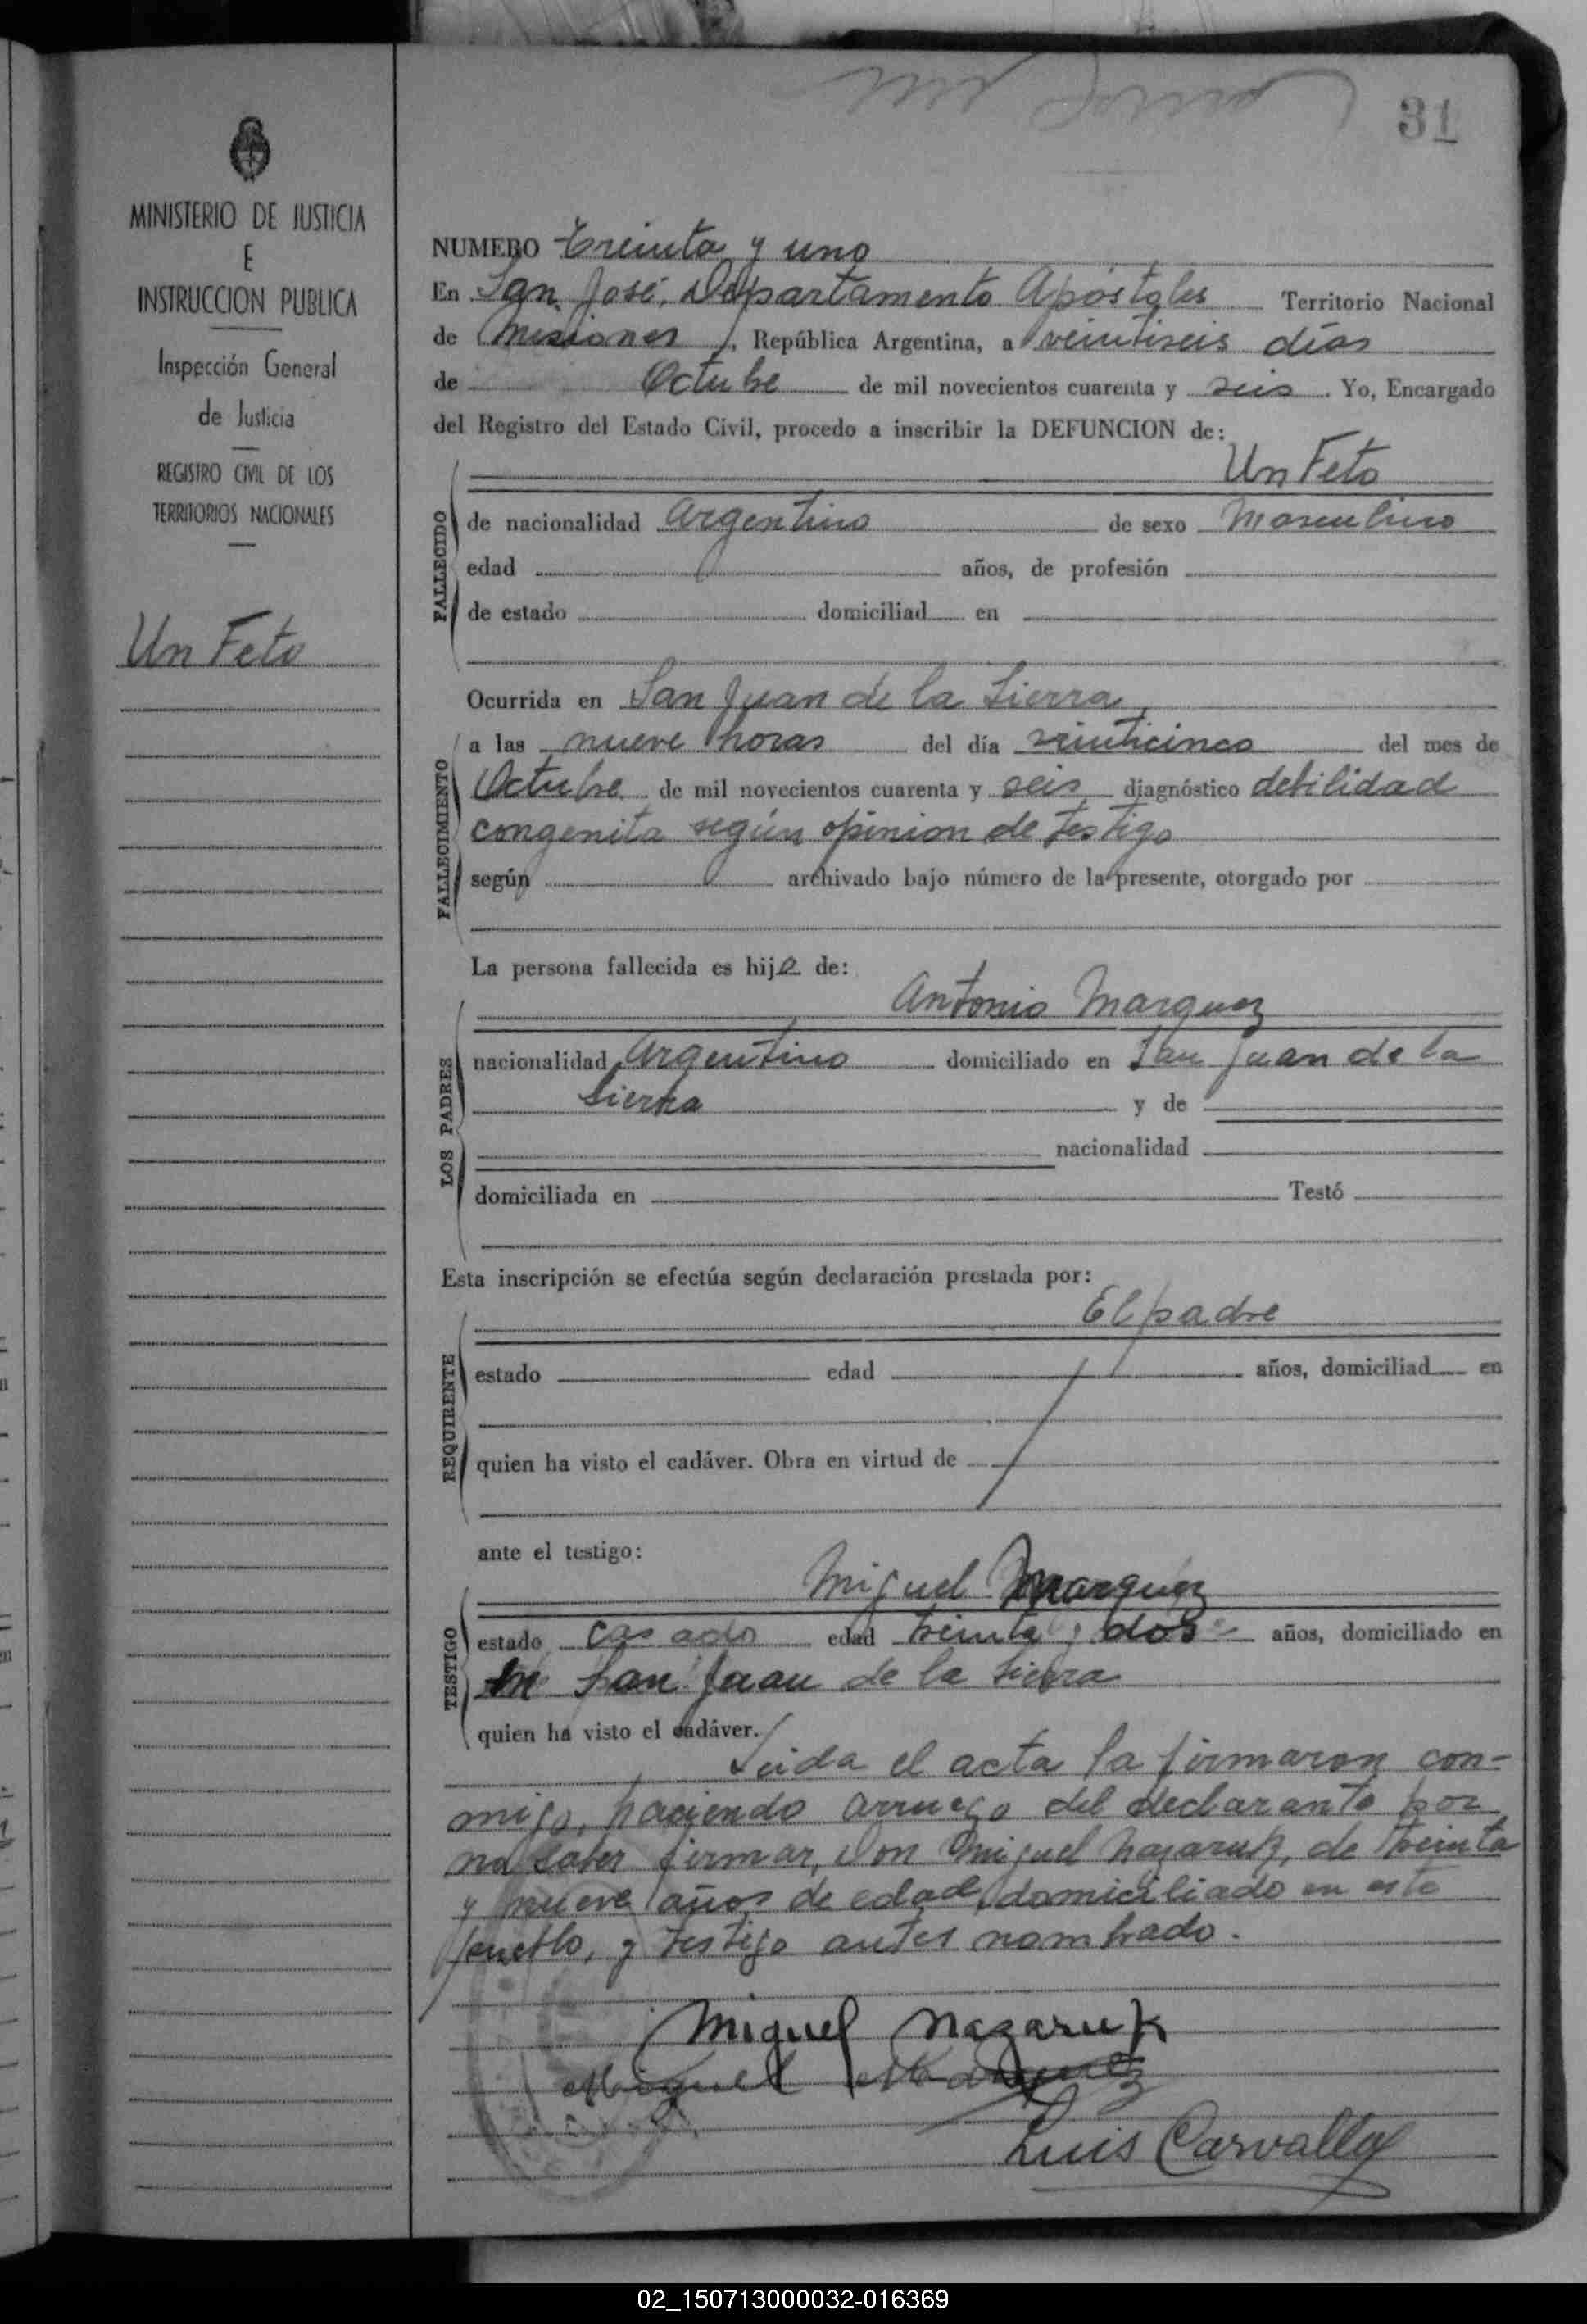 31
MINISTERIO DE JUSTICIA
E
INSTRUCCION PUBLICA
Inspección General
de Justicia
REGISTRO CIVIL DE LOS
TERRITORIOS NACIONALES
Un Feto
NUMERO Treinta y uno
En San José, Departamento Apóstoles Territorio Nacional
de Misiones, República Argentina, a veintiseis días
de Octubre de mil novecientos cuarenta y seis. Yo, Encargado
del Registro del Estado Civil, procedo a inscribir la DEFUNCION de:
Un Feto
FALLECIDO
de nacionalidad Argentino de sexo Masculino
edad años, de profesión
de estado domiciliad en
Ocurrida en San Juan de la Sierra,
FALLECIMIENTO
a las nueve horas del día veinticinco del mes de
Octubre de mil novecientos cuarenta y seis diagnóstico debilidad
congenita según opinion de testigo
según archivado bajo número de la presente, otorgado por
La persona fallecida es hijo de:
Antonio Marquez
LOS PADRES
nacionalidad Argentino domiciliado en San Juan de la
Sierra y de
nacionalidad
domiciliada en Testó
Esta inscripción se efectúa según declaración prestada por:
El padre
REQUIRENTE
estado edad años, domiciliad en
quien ha visto el cadáver. Obra en virtud de
ante el testigo:
Miguel Marquez
TESTIGO
estado casado edad treinta y dos años, domiciliado en
en San Juan de la Sierra
quien ha visto el cadáver.
Leida el acta la firmaron con-
migo, haciendo arruego del declarante por
no saber firmar, Don Miguel Nazaruk, de treinta
y nueve años de edad, domiciliado en este
pueblo, y testigo antes nombrado.
Miguel Nazaruk
Miguel Marquez
Luis Carvallo
02_150713000032-016369